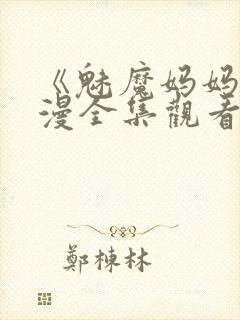 《魅魔妈妈
漫全集觀看
鄭棟林